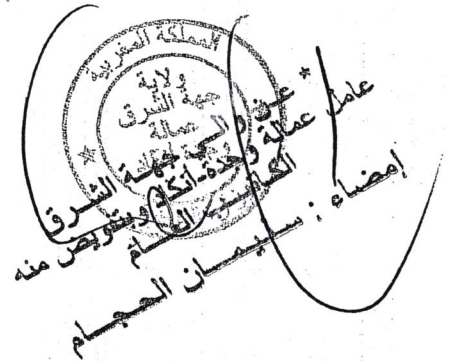 المملكة المغربية
ولاية
جهة الشرق
عمالة
عن والي جهة الشرق
عامل عمالة وجدة-أنكاد وبتفويض منه
الكاتب العام
إمضاء : سليمان الحجام